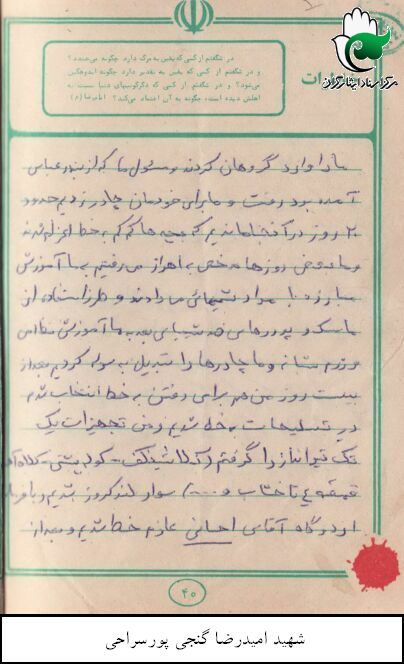 مرکز اسناد ایثارگران
در شگفتم از کسی که یقین به مرگ دارد. چگونه می‌خندد؟
و در شگفتم از کسی که یقین به تقدیر دارد چگونه اندوهگین
می‌شود؟ و در شگفتم از کسی که دگرگونیهای دنیا نسبت به
اهلش دیده است، چگونه به آن اعتماد می‌کند؟ امام رضا (ع)
ما را وارد گروهان کردند و مسئول ما که از بندرعباس
آمده بود رفت و ما برای خودمان چادر زدیم حدود
۲۰ روز در آنجا ماندیم که بچه ها کم کم به خط اعزام شدند
و ما بعضی روزها مرخصی به اهواز می رفتیم به ما آموزش
مبارزه با مواد شیمیائی می دادند و طرز استفاده از
ماسک و پودرهای ضد شیمیایی بعد به ما آموزش نظامی
و رزم شبانه و ما چادرها را تبدیل به سوله کردیم بعد از
بیست روز من هم برای رفتن به خط انتخاب شدم
در تسلیحات به خط شدیم و من تجهیزات یک
تک تیرانداز را گرفتم (کلاشینکف - کوله پشتی - کلاه آهنی
قمقمه ۴ تا خشاب و ....) سوار لندکروز شدیم و با فرمانده
اردوگاه آقای احسانی عازم خط شدیم و بعد از
۴۰
شهید امیدرضا گنجی پورسراحی